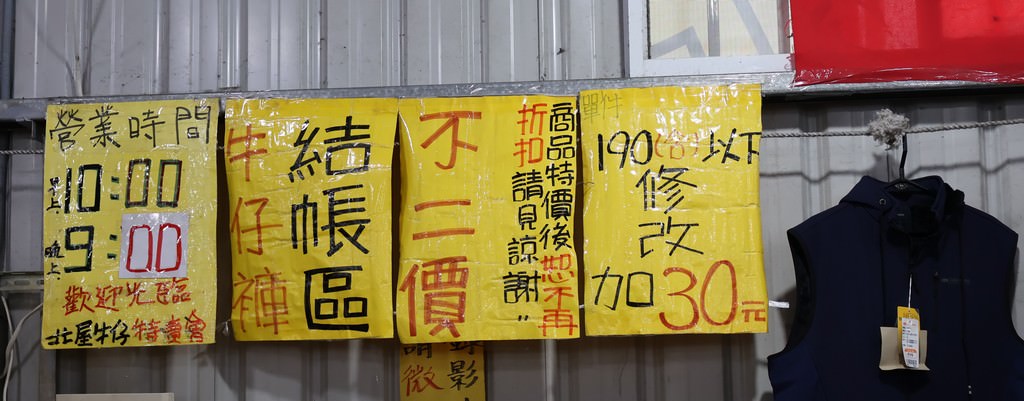 營業時間
早上10:00
晚上9:00
歡迎光臨
北屋牛仔特賣會
結帳區
牛仔褲
商品特價後恕不再
折扣請見諒謝"
不二價
單件
190(含)以下
修改
加30元
錄影
請微